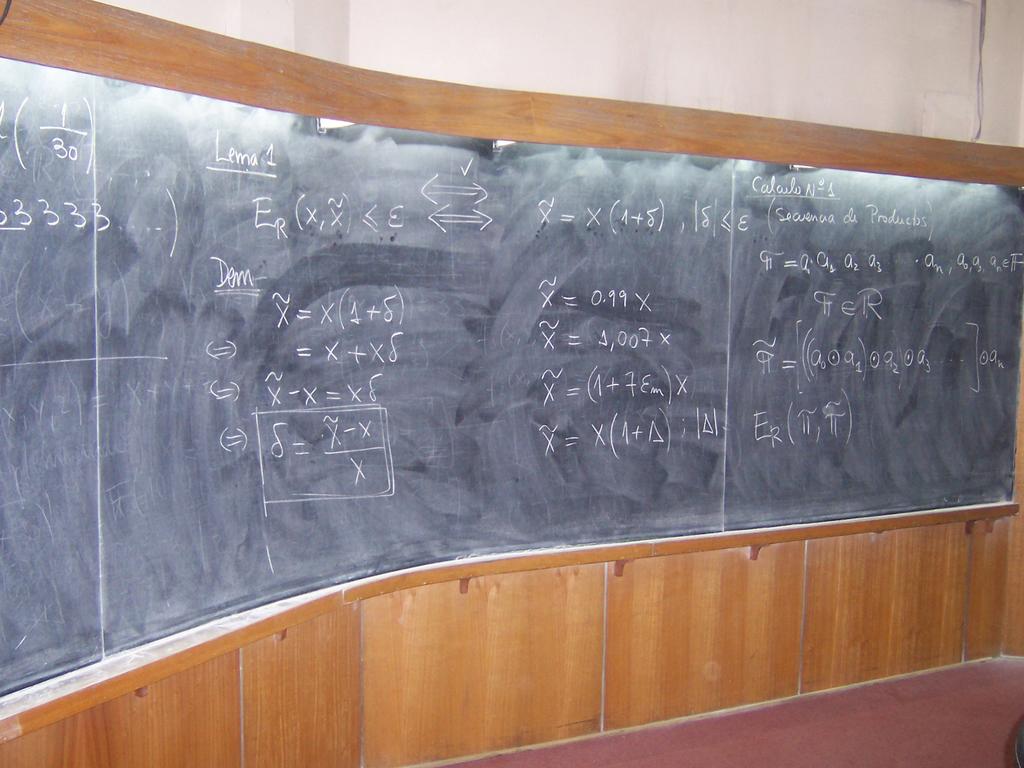 ( 1/30 )
3333 . . )
Lema 1
E_R (x, x̃) ⩽ ε ⟺ x̃ = x (1+δ) , |δ| ⩽ ε
⟺ ✓
Dem-
x̃ = x(1+δ)
⟺ = x + xδ
⟺ x̃ - x = xδ
⟺ δ = (x̃ - x)/x
x̃ = 0.99 x
x̃ = 1,007 x
x̃ = (1+7 εm) x
x̃ = x(1+Δ) ; |Δ|
Calculo Nº 1
(Secuencia de Productos)
π = a₀ a₁ a₂ a₃ . . . aₙ , a₀, a₁, aₙ ∈ F
π ∈ ℝ
π̃ = [((a₀ ⊙ a₁) ⊙ a₂) ⊙ a₃ . . . ] ⊙ aₙ
E_R (π, π̃)